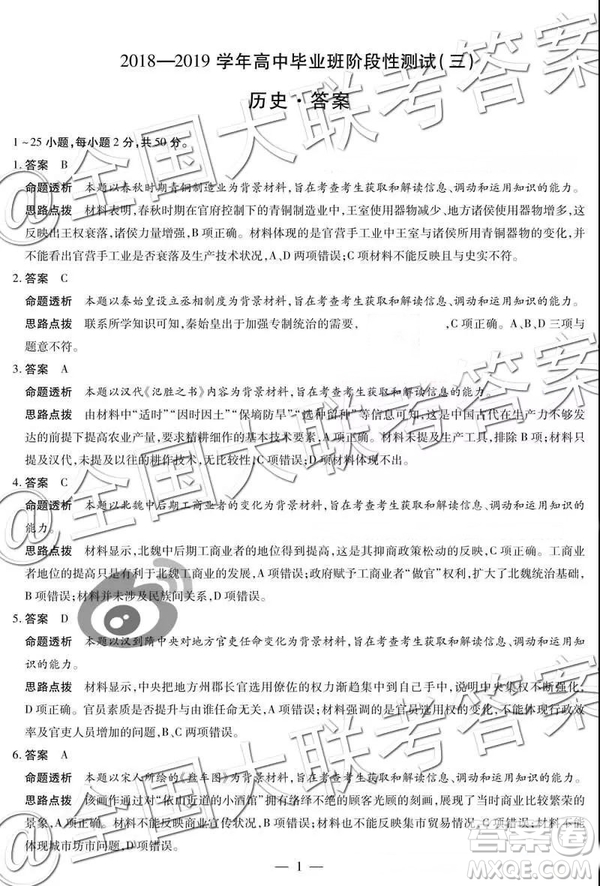 2018—2019 学年高中毕业班阶段性测试(三)
历史·答案
1~25 小题,每小题 2 分,共 50 分。
1. 答案 B
命题透析 本题以春秋时期青铜制造业为背景材料,旨在考查考生获取和解读信息、调动和运用知识的能力。
思路点拨 材料表明,春秋时期在官府控制下的青铜制造业中,王室使用器物减少、地方诸侯使用器物增多,这
反映出王权衰落,诸侯力量增强,B 项正确。材料体现的是官营手工业中王室与诸侯所用青铜器物的变化,并
不能看出官营手工业是否衰落及生产技术状况,A、D 两项错误;C 项材料不能反映且与史实不符。
2. 答案 C
命题透析 本题以秦始皇设立丞相制度为背景材料,旨在考查考生获取和解读信息、调动和运用知识的能力。
思路点拨 联系所学知识可知,秦始皇出于加强专制统治的需要, ,C 项正确。A、B、D 三项与
题意不符。
3. 答案 A
命题透析 本题以汉代《氾胜之书》内容为背景材料,旨在考查考生获取和解读信息、调动和运用知识的能力。
思路点拨 由材料中“适时”“因时因土”“保墒防旱”“选种留种”等信息可知,这是中国古代在生产力不够发
达的前提下提高农业产量,要求精耕细作的基本技术要素,A 项正确。材料未提及生产工具,排除 B 项;材料只
提及汉代,并未提及以往的耕作技术,无比较性;C 项错误;D 项材料体现不出。
4. 答案 C
命题透析 本题以北魏中后期工商业者的变化为背景材料,旨在考查考生获取和解读信息、调动和运用知识的
能力。
思路点拨 材料显示,北魏中后期工商业者的地位得到提高,这是其抑商政策松动的反映,C 项正确。工商业
者地位的提高只是发生在北魏工商业者的发展,A 项错误;政府赋予工商业者“做官”权利,扩大了北魏统治基础,
B 项错误;材料并未涉及民族间关系,D 项错误。
5. 答案 D
命题透析 本题以汉到隋中央对地方官吏任命变化为背景材料,旨在考查考生获取和解读信息、调动和运用知
识的能力。
思路点拨 材料显示,中央把地方州郡长官选用僚佐的权力渐趋集中到自己手中,说明中央集权不断强化,
D 项正确。官员素质是否提升与由谁任命无关,A 项错误;材料强调的是官员选任权的变化,不能体现行政效
率及官吏人员增加的问题,B、C 两项错误。
6. 答案 A
命题透析 本题以宋人所绘的《盘车图》为背景材料,旨在考查考生获取和解读信息、调动和运用知识的能力。
思路点拨 该画作通过对“依山近道的小酒馆”拥有络绎不绝的顾客光顾的刻画,展现了当时商业比较繁荣的
景象,A 项正确;材料不能反映商业宣传状况,B 项错误;材料不能反映集市贸易情况,C 项错误;材料不能
体现城市坊市问题,D 项错误。
— 1 —
@全国大联考答案